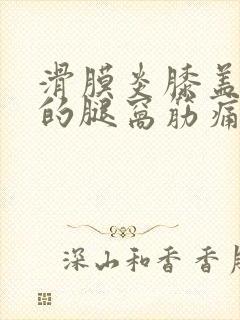 滑膜炎膝盖
的腿窝筋痛
深山和香香